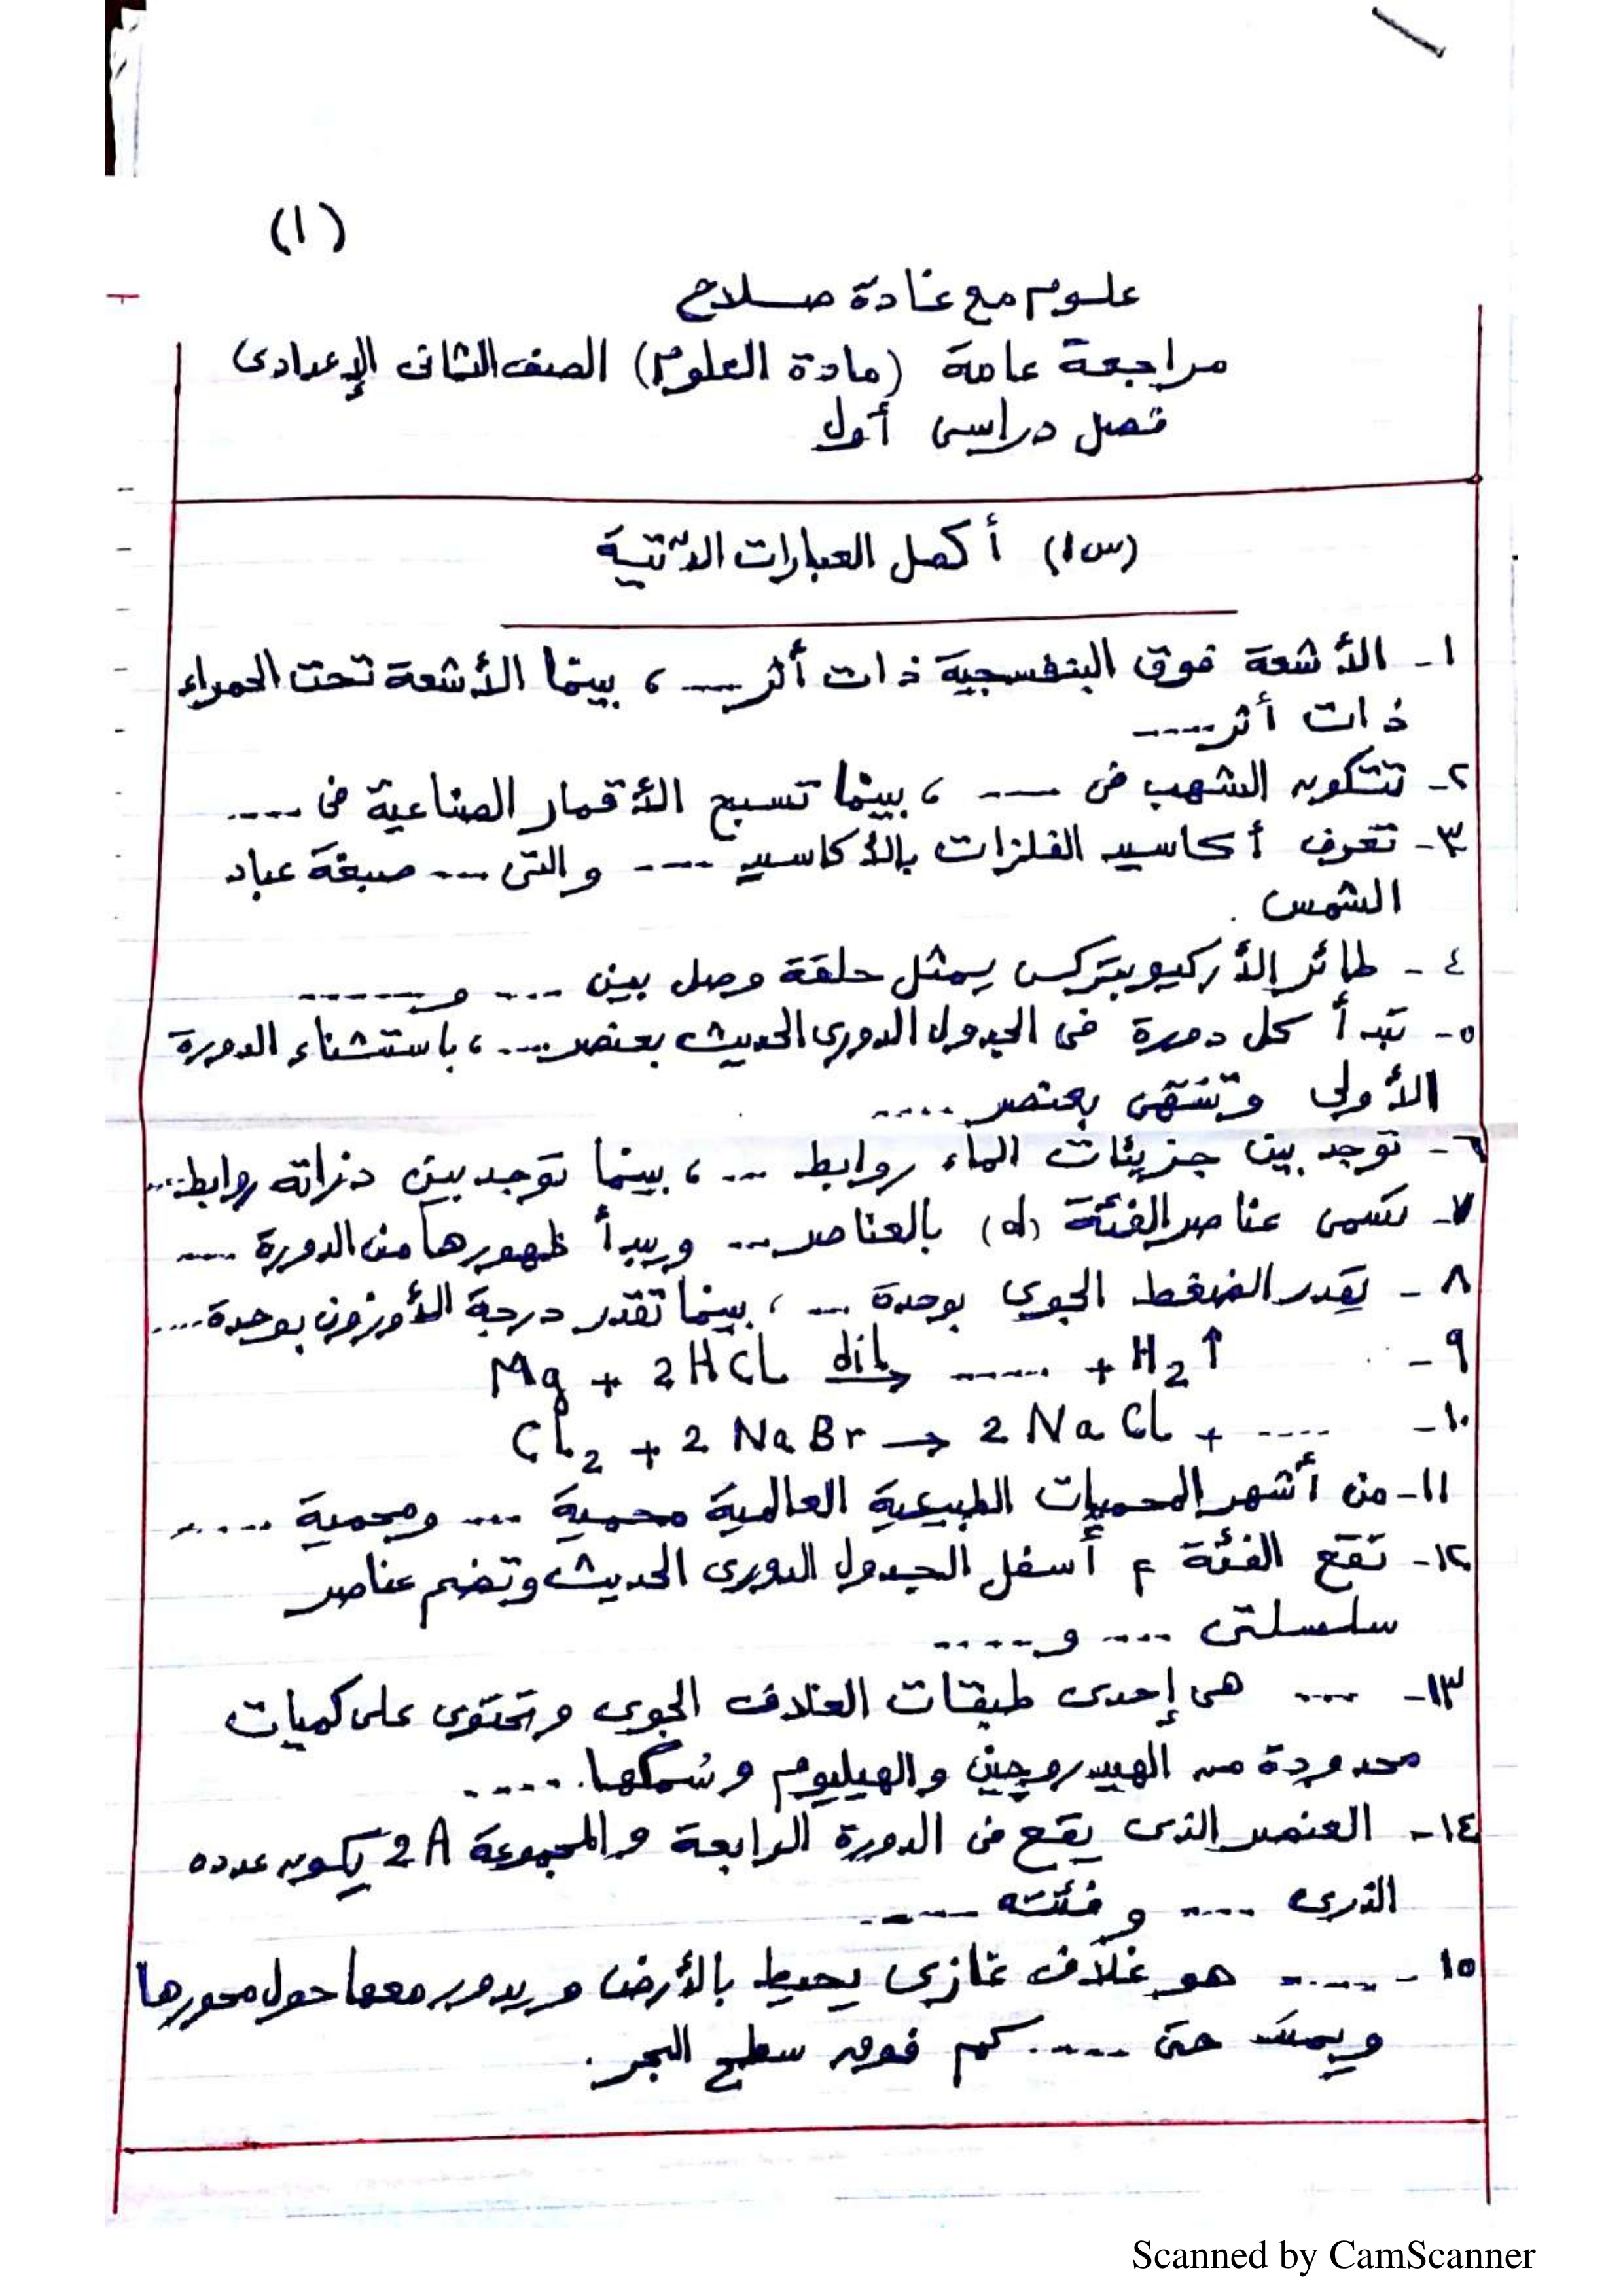 (١)
علوم مع غادة صلاح
مراجعة عامة (مادة العلوم) الصف الثانى الإعدادى
فصل دراسى أول
(س١) أكمل العبارات الآتية
١- الأشعة فوق البنفسجية ذات أثر ..... ، بينما الأشعة تحت الحمراء
ذات أثر .....
٢- تتكون الشهب فى ..... ، بينما تسبح الأقمار الصناعية فى .....
٣- تعرف أكاسيد الفلزات بالأكاسيد ..... والتى ..... صبغة عباد
الشمس .
٤- طائر الأركيوبتركس يمثل حلقة وصل بين ..... و .....
٥- تبدأ كل دورة فى الجدول الدورى الحديث بعنصر ..... ، باستثناء الدورة
الأولى وتنتهى بعنصر .....
٦- توجد بين جزيئات الماء روابط ..... ، بينما توجد بين ذراته روابط .....
٧- تسمى عناصر الفئة (d) بالعناصر ..... ويبدأ ظهورها من الدورة .....
٨- يقدر الضغط الجوى بوحدة ..... ، بينما تقدر درجة الأوزون بوحدة .....
٩- Mg + 2HCL dil→ ...... + H2↑
١٠- CL2 + 2NaBr → 2NaCL + .....
١١- من أشهر المحميات الطبيعية العالمية محمية ..... ومحمية .....
١٢- تقع الفئة f أسفل الجدول الدورى الحديث وتضم عناصر
سلسلتى ..... و .....
١٣- ..... هى إحدى طبقات الغلاف الجوى وتحتوى على كميات
محدودة من الهيدروجين والهيليوم وسُمكها .....
١٤- العنصر الذى يقع فى الدورة الرابعة والمجموعة 2A يكون عدده
الذرى ..... وفئته .....
١٥- ..... هو غلاف غازى يحيط بالأرض ويدور معها حول محورها
ويمتد حتى ..... كم فوق سطح البحر .
Scanned by CamScanner